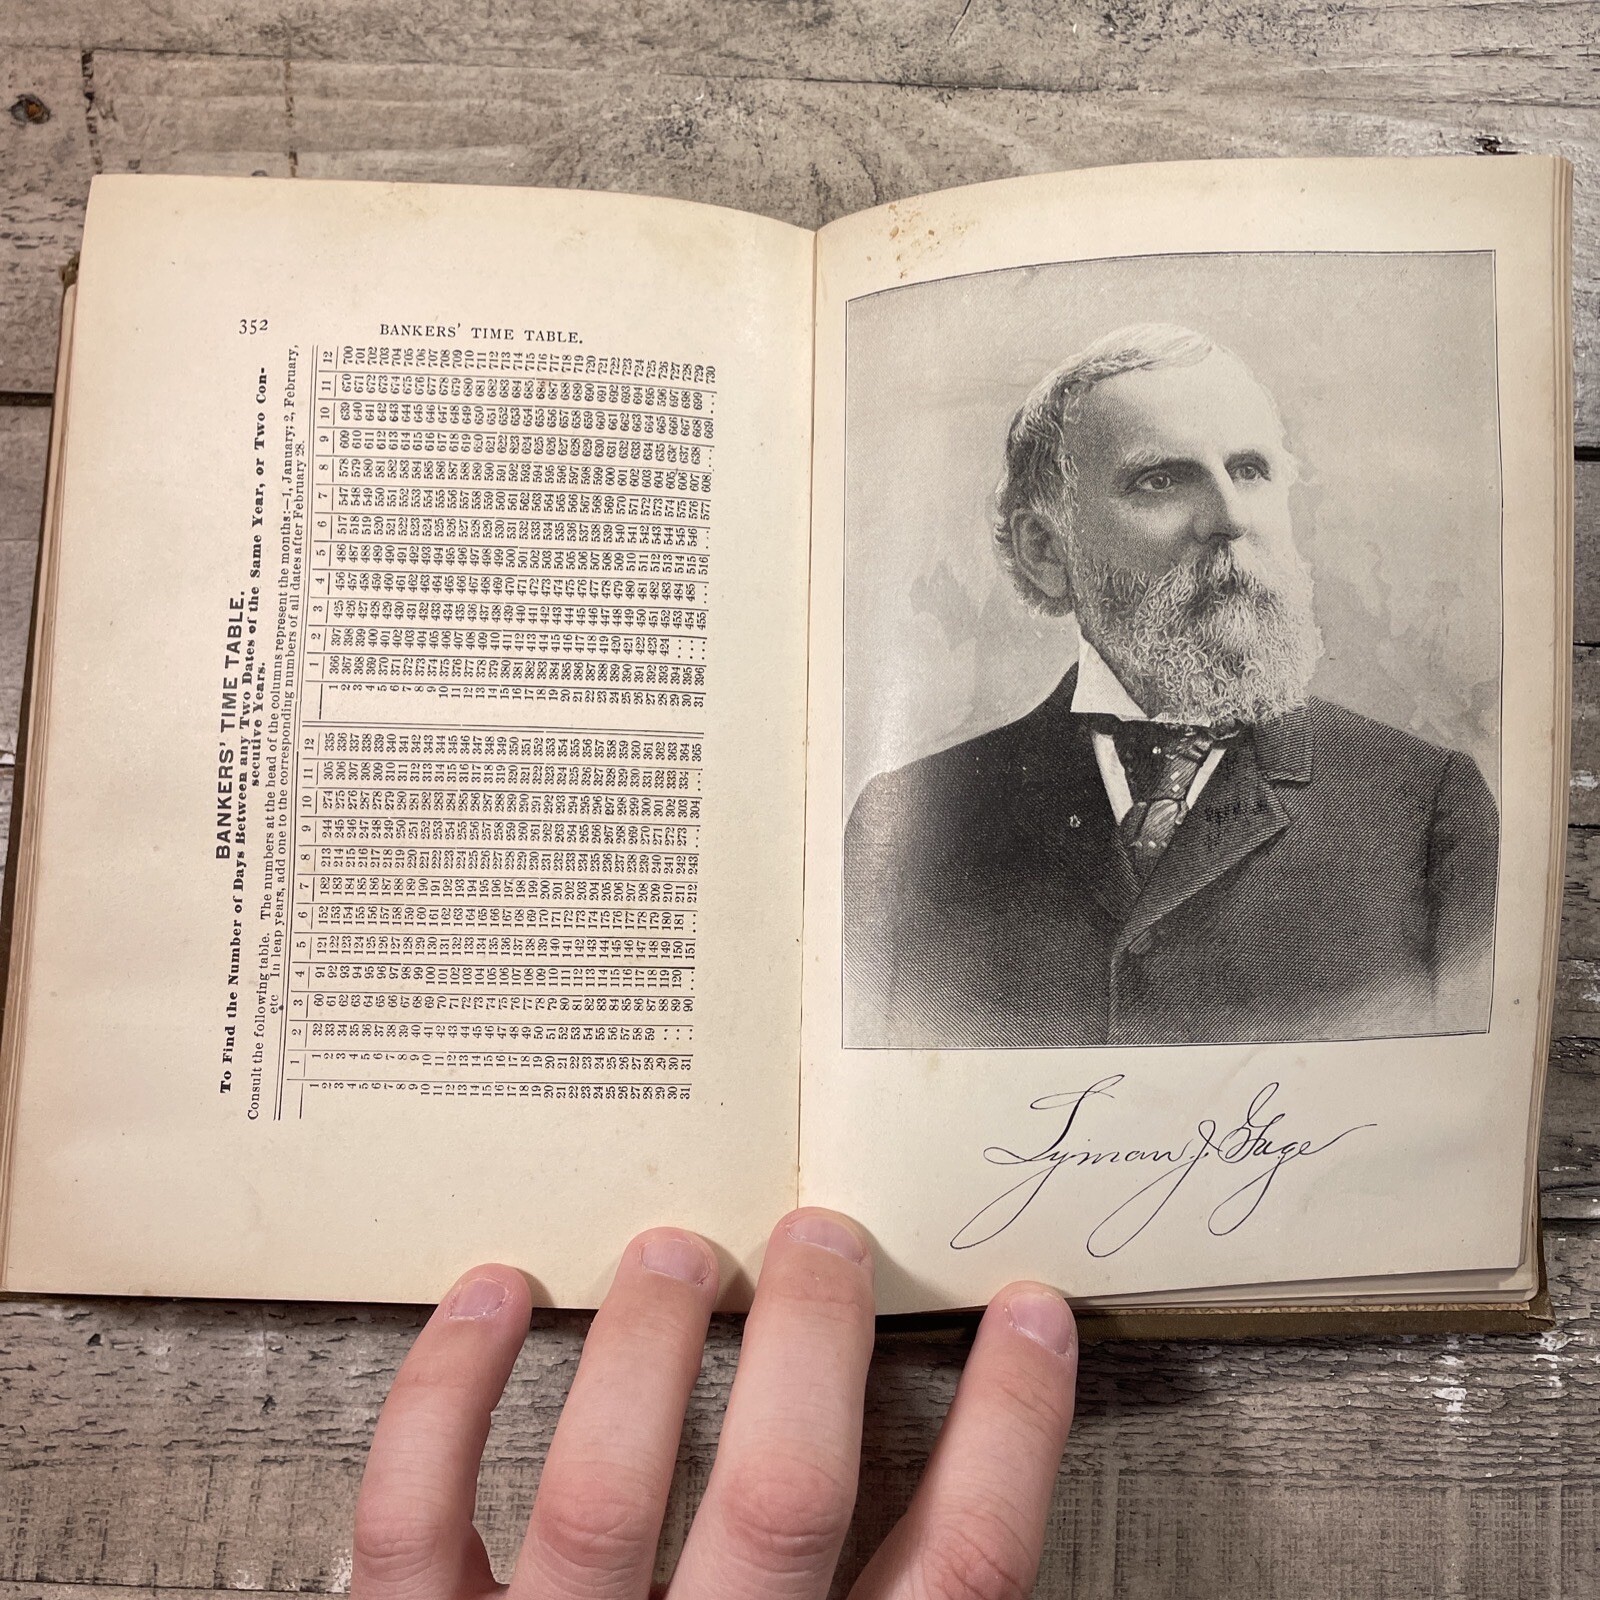 352
BANKERS' TIME TABLE.
BANKERS' TIME TABLE.
To Find the Number of Days Between any Two Dates of the Same Year, or Two Con-
secutive Years.
Consult the following table. The numbers at the head of the columns represent the months:—1, January; 2, February,
etc In leap years, add one to the corresponding numbers of all dates after February 28.
1 2 3 4 5 6 7 8 9 10 11 12 1 2 3 4 5 6 7 8 9 10 11 12
1 1 32 60 91 121 152 182 213 244 274 305 335 1 366 397 425 456 486 517 547 578 609 639 670 700
2 2 33 61 92 122 153 183 214 245 275 306 336 2 367 398 426 457 487 518 548 579 610 640 671 701
3 3 34 62 93 123 154 184 215 246 276 307 337 3 368 399 427 458 488 519 549 580 611 641 672 702
4 4 35 63 94 124 155 185 216 247 277 308 338 4 369 400 428 459 489 520 550 581 612 642 673 703
5 5 36 64 95 125 156 186 217 248 278 309 339 5 370 401 429 460 490 521 551 582 613 643 674 704
6 6 37 65 96 126 157 187 218 249 279 310 340 6 371 402 430 461 491 522 552 583 614 644 675 705
7 7 38 66 97 127 158 188 219 250 280 311 341 7 372 403 431 462 492 523 553 584 615 645 676 706
8 8 39 67 98 128 159 189 220 251 281 312 342 8 373 404 432 463 493 524 554 585 616 646 677 707
9 9 40 68 99 129 160 190 221 252 282 313 343 9 374 405 433 464 494 525 555 586 617 647 678 708
10 10 41 69 100 130 161 191 222 253 283 314 344 10 375 406 434 465 495 526 556 587 618 648 679 709
11 11 42 70 101 131 162 192 223 254 284 315 345 11 376 407 435 466 496 527 557 588 619 649 680 710
12 12 43 71 102 132 163 193 224 255 285 316 346 12 377 408 436 467 497 528 558 589 620 650 681 711
13 13 44 72 103 133 164 194 225 256 286 317 347 13 378 409 437 468 498 529 559 590 621 651 682 712
14 14 45 73 104 134 165 195 226 257 287 318 348 14 379 410 438 469 499 530 560 591 622 652 683 713
15 15 46 74 105 135 166 196 227 258 288 319 349 15 380 411 439 470 500 531 561 592 823 653 684 714
16 16 47 75 106 136 167 197 228 259 289 320 350 16 381 412 440 471 501 532 562 593 624 654 685 715
17 17 48 76 107 137 168 198 229 260 290 321 351 17 382 413 441 472 502 533 563 594 625 655 686 716
18 18 49 77 108 138 169 199 230 261 291 322 352 18 383 414 442 473 503 534 564 595 626 656 687 717
19 19 50 78 109 139 170 200 231 262 292 323 353 19 384 415 443 474 504 535 565 596 627 657 688 718
20 20 51 79 110 140 171 201 232 263 293 324 354 20 385 416 444 475 505 536 566 597 628 658 689 719
21 21 52 80 111 141 172 202 233 264 294 325 355 21 386 417 445 476 506 537 567 598 629 659 690 720
22 22 53 81 112 142 173 203 234 265 295 326 356 22 387 418 446 477 507 538 568 599 630 660 691 721
23 23 54 82 113 143 174 204 235 266 296 327 357 23 388 419 447 478 508 539 569 600 631 661 692 722
24 24 55 83 114 144 175 205 236 267 297 328 358 24 389 420 448 479 509 540 570 601 632 662 693 723
25 25 56 84 115 145 176 206 237 268 298 329 359 25 390 421 449 480 510 541 571 602 633 663 694 724
26 26 57 85 116 146 177 207 238 269 299 330 360 26 391 422 450 481 511 542 572 603 634 664 695 725
27 27 58 86 117 147 178 208 239 270 300 331 361 27 392 423 451 482 512 543 573 604 635 665 596 726
28 28 59 87 118 148 179 209 240 271 301 332 362 28 393 424 452 483 513 544 574 605 636 666 697 727
29 29 ... 88 119 149 180 210 241 272 302 333 363 29 394 ... 453 484 514 545 575 606 637 667 698 728
30 30 ... 89 120 150 181 211 242 273 303 334 364 30 395 ... 454 485 515 546 576 607 638 668 699 729
31 31 ... 90 ... 151 ... 212 243 ... 304 ... 365 31 396 ... 455 ... 516 ... 577 608 ... 669 ... 730
Lyman J. Gage